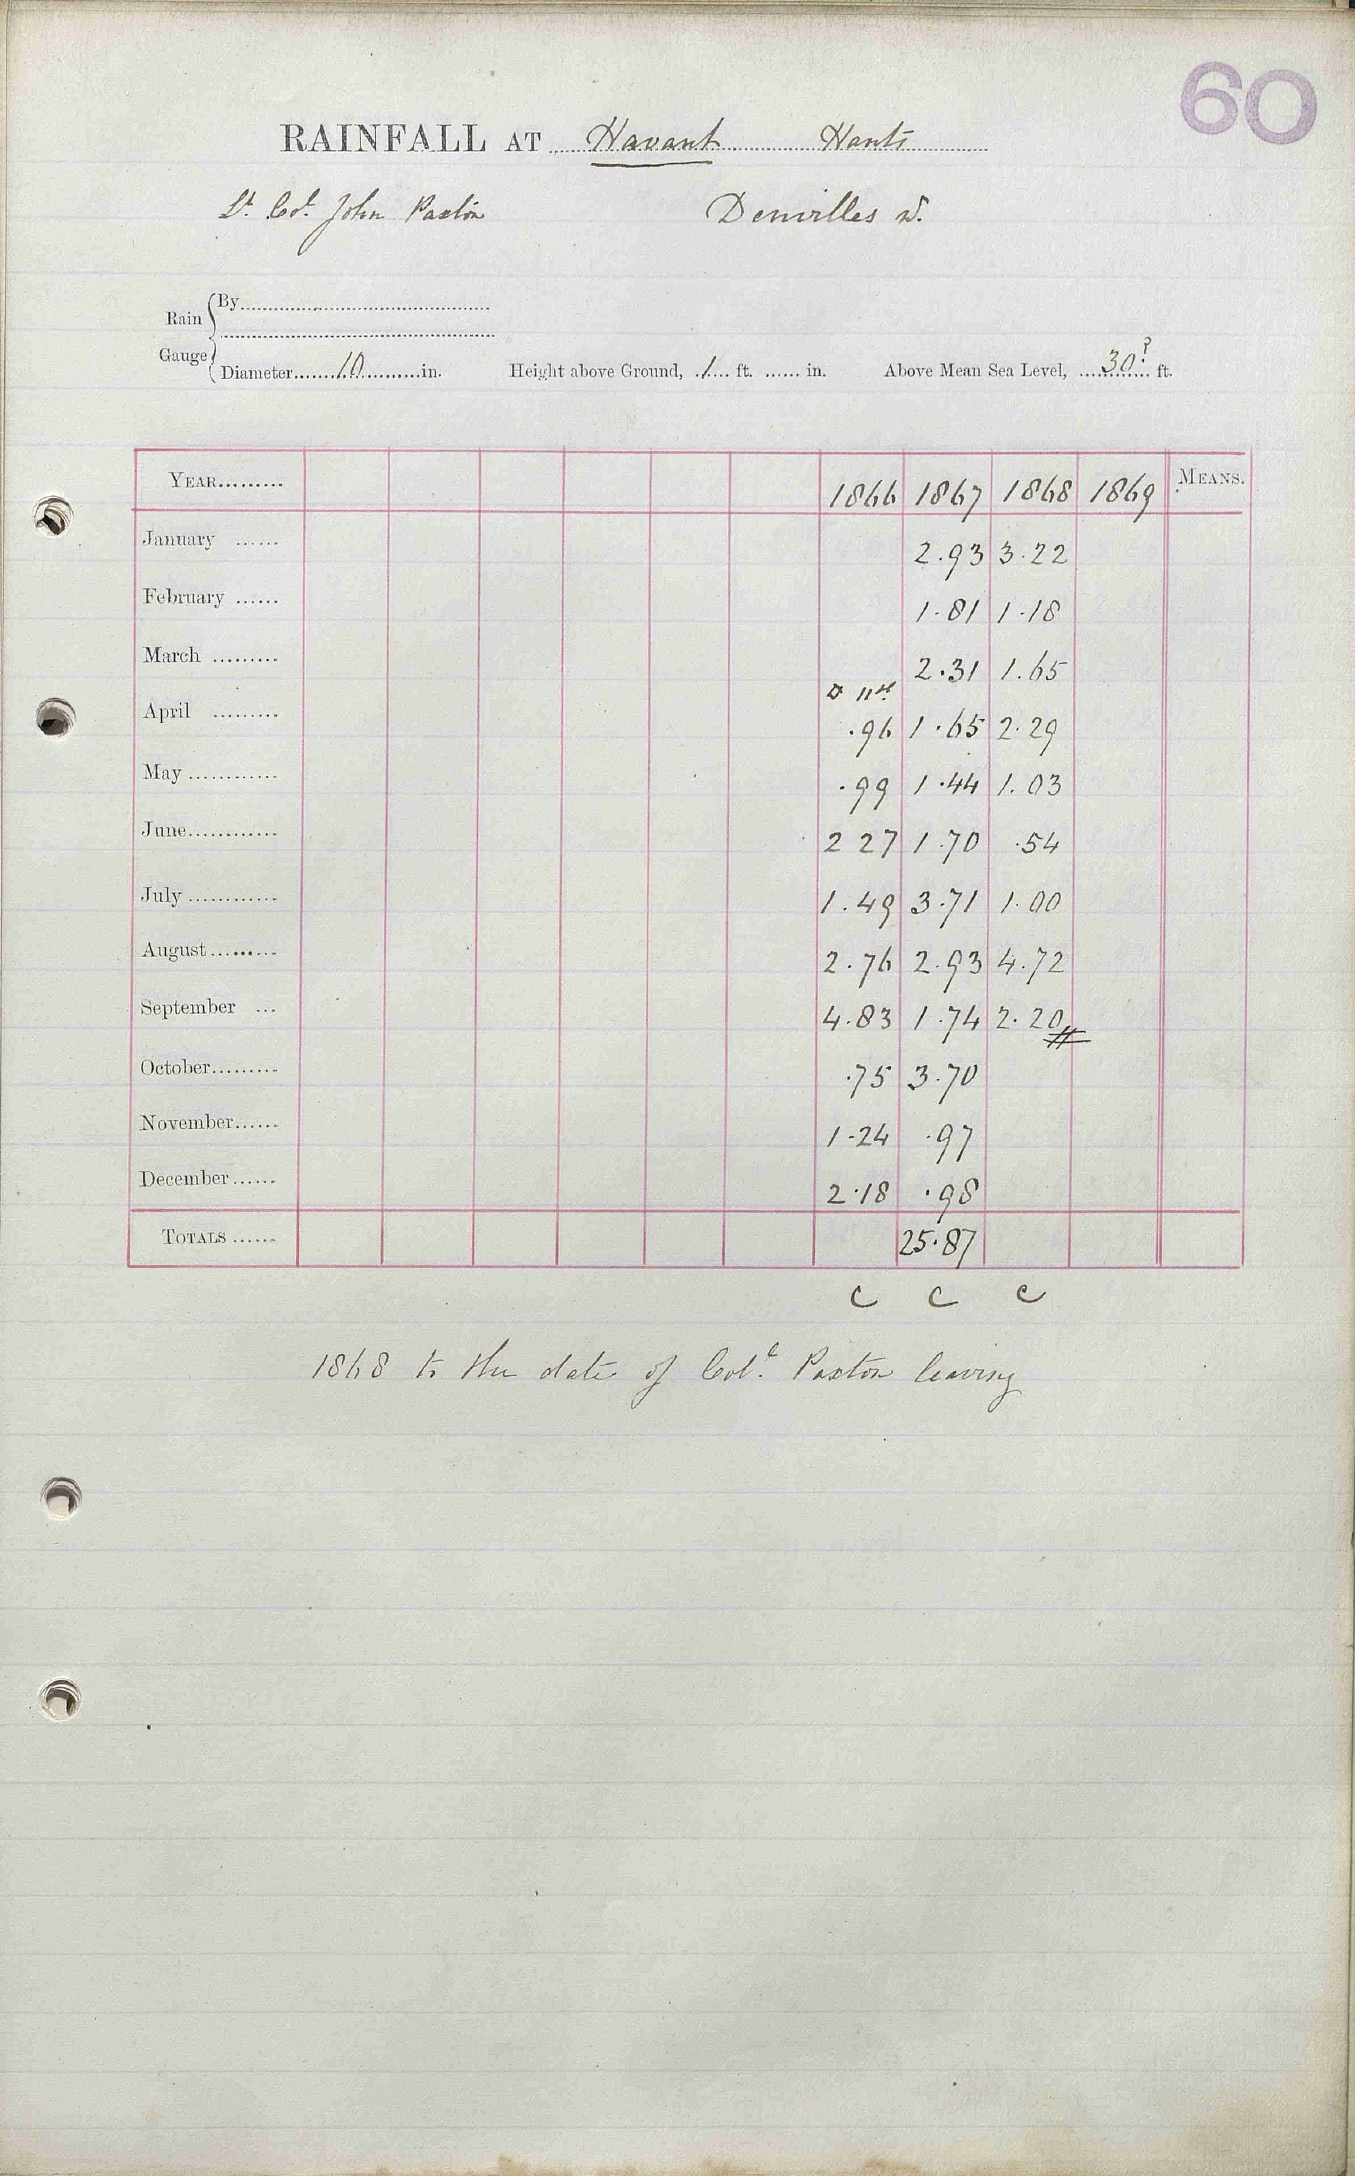 60
RAINFALL AT Havant Hants
Lt. Col. John Paxton Denvilles
Rain Gauge
By
Diameter 10 in. Height above Ground, 1 ft. in. Above Mean Sea Level, 30? ft.
YEAR 1866 1867 1868 1869 MEANS.
January 2.93 3.22
February 1.81 1.18
March 2.31 1.65
11th
April .96 1.65 2.29
May .99 1.44 1.03
June 2 27 1.70 .54
July 1.49 3.71 1.00
August 2.76 2.93 4.72
September 4.83 1.74 2.20
October .75 3.70
November 1.24 .97
December 2.18 .98
TOTALS 25.87
C C C
1868 to the date of Col. Paxton leaving